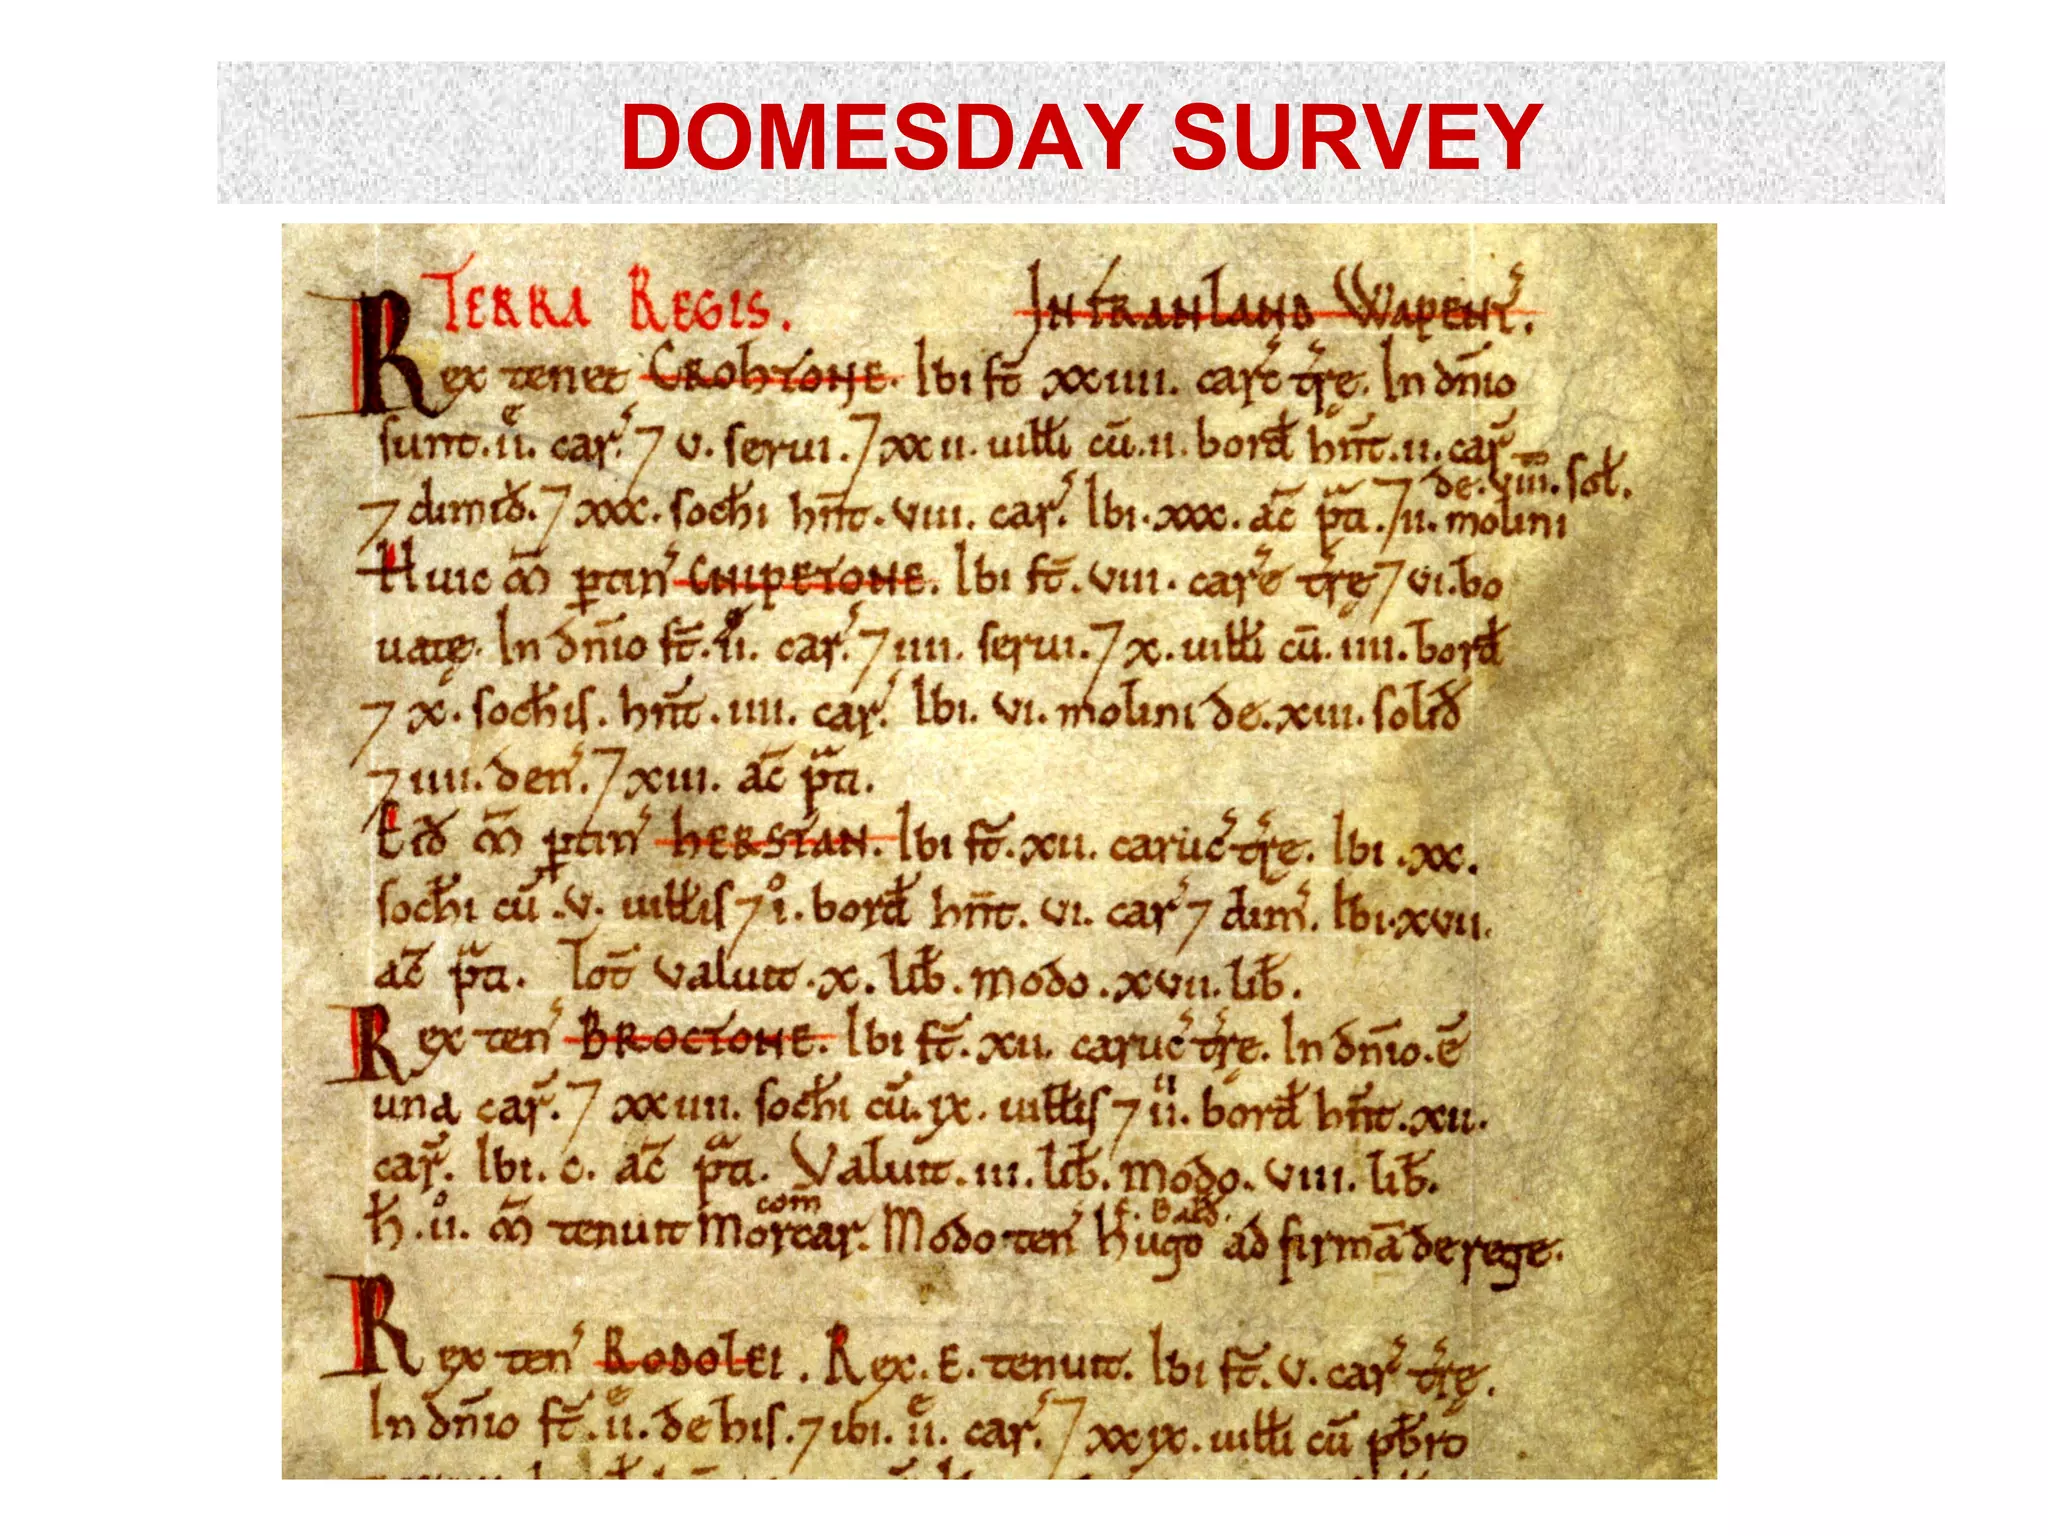 DOMESDAY SURVEY
TERRA REGIS. IN FRANLAND WAPENT'.
Rex tenet CROHTONE. Ibi st̄ xxiiii. car̄ tr̄ę. In dn̄io
sunt.ii. car̄. ⁊ v. serui. ⁊ xxii. uilłi cū.ii. borđ hn̄t.ii. car̄
de.viii. sol.
⁊ dimiđ. ⁊ xxx. socħi hn̄t. viii. car̄. Ibi. xxx. ac̄ p̄ti. ⁊ ii. molini
Huic m̄ ptin' CNIPETONE. Ibi st̄. viii. car̄ tr̄ę ⁊ vi. bo
uatę. In dn̄io st̄. ii. car̄. ⁊ iiii. serui. ⁊ x. uilłi cū. iiii. borđ
⁊ x. socħis. hn̄t. iiii. car̄. Ibi. vi. molini de. xiii. soliđ
⁊ iiii. den'. ⁊ xiii. ac̄ p̄ti.
Eiđ m̄ ptin' HERSTAN. Ibi st̄. xii. caruc̄ tr̄ę. Ibi. xx.
socħi cū. v. uilłis ⁊ i. borđ hn̄t. vi. car̄ ⁊ dim'. Ibi. xvii.
ac̄ p̄ti. Tot̄ valuit. x. lib̄. Modo. xvii. lib̄.
Rex ten' BROCTONE. Ibi st̄. xii. caruc̄ tr̄ę. In dn̄io. ē
una car̄. ⁊ xxiiii. socħi cū. ix. uilłis ⁊ ii. borđ hn̄t. xii.
car̄. Ibi. c. ac̄ p̄ti. Valuit. iii. lib̄. Modo. viii. lib̄.
com f. Bald.
ħ. ii. m̄ tenuit Morcar. Modo ten' hugo ad firmā de rege.
Rex ten' RODOLEI. Rex. E. tenuit. Ibi st̄. v. car̄ tr̄ę.
In dn̄io st̄. ii. de his. ⁊ ibi. ii. car̄. ⁊ xxix. uilłi cū pb̄ro